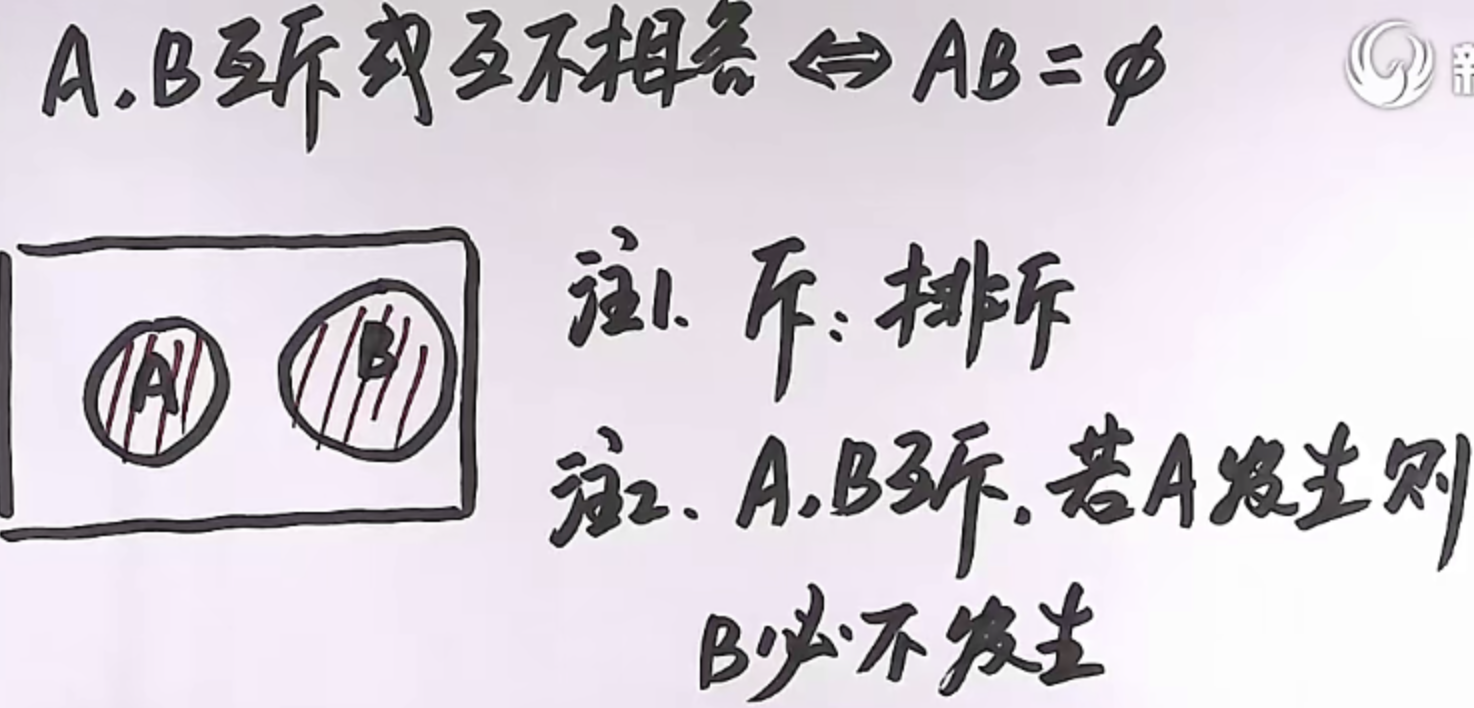 A,B互斥或互不相容⇔AB=φ
A
B
注1. 斥:排斥
注2. A,B互斥,若A发生则
B必不发生